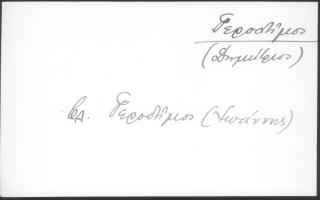 Γεροδῆμος
(Δημήτριος)
βλ. Γεροδῆμος (Ἰωάννης)